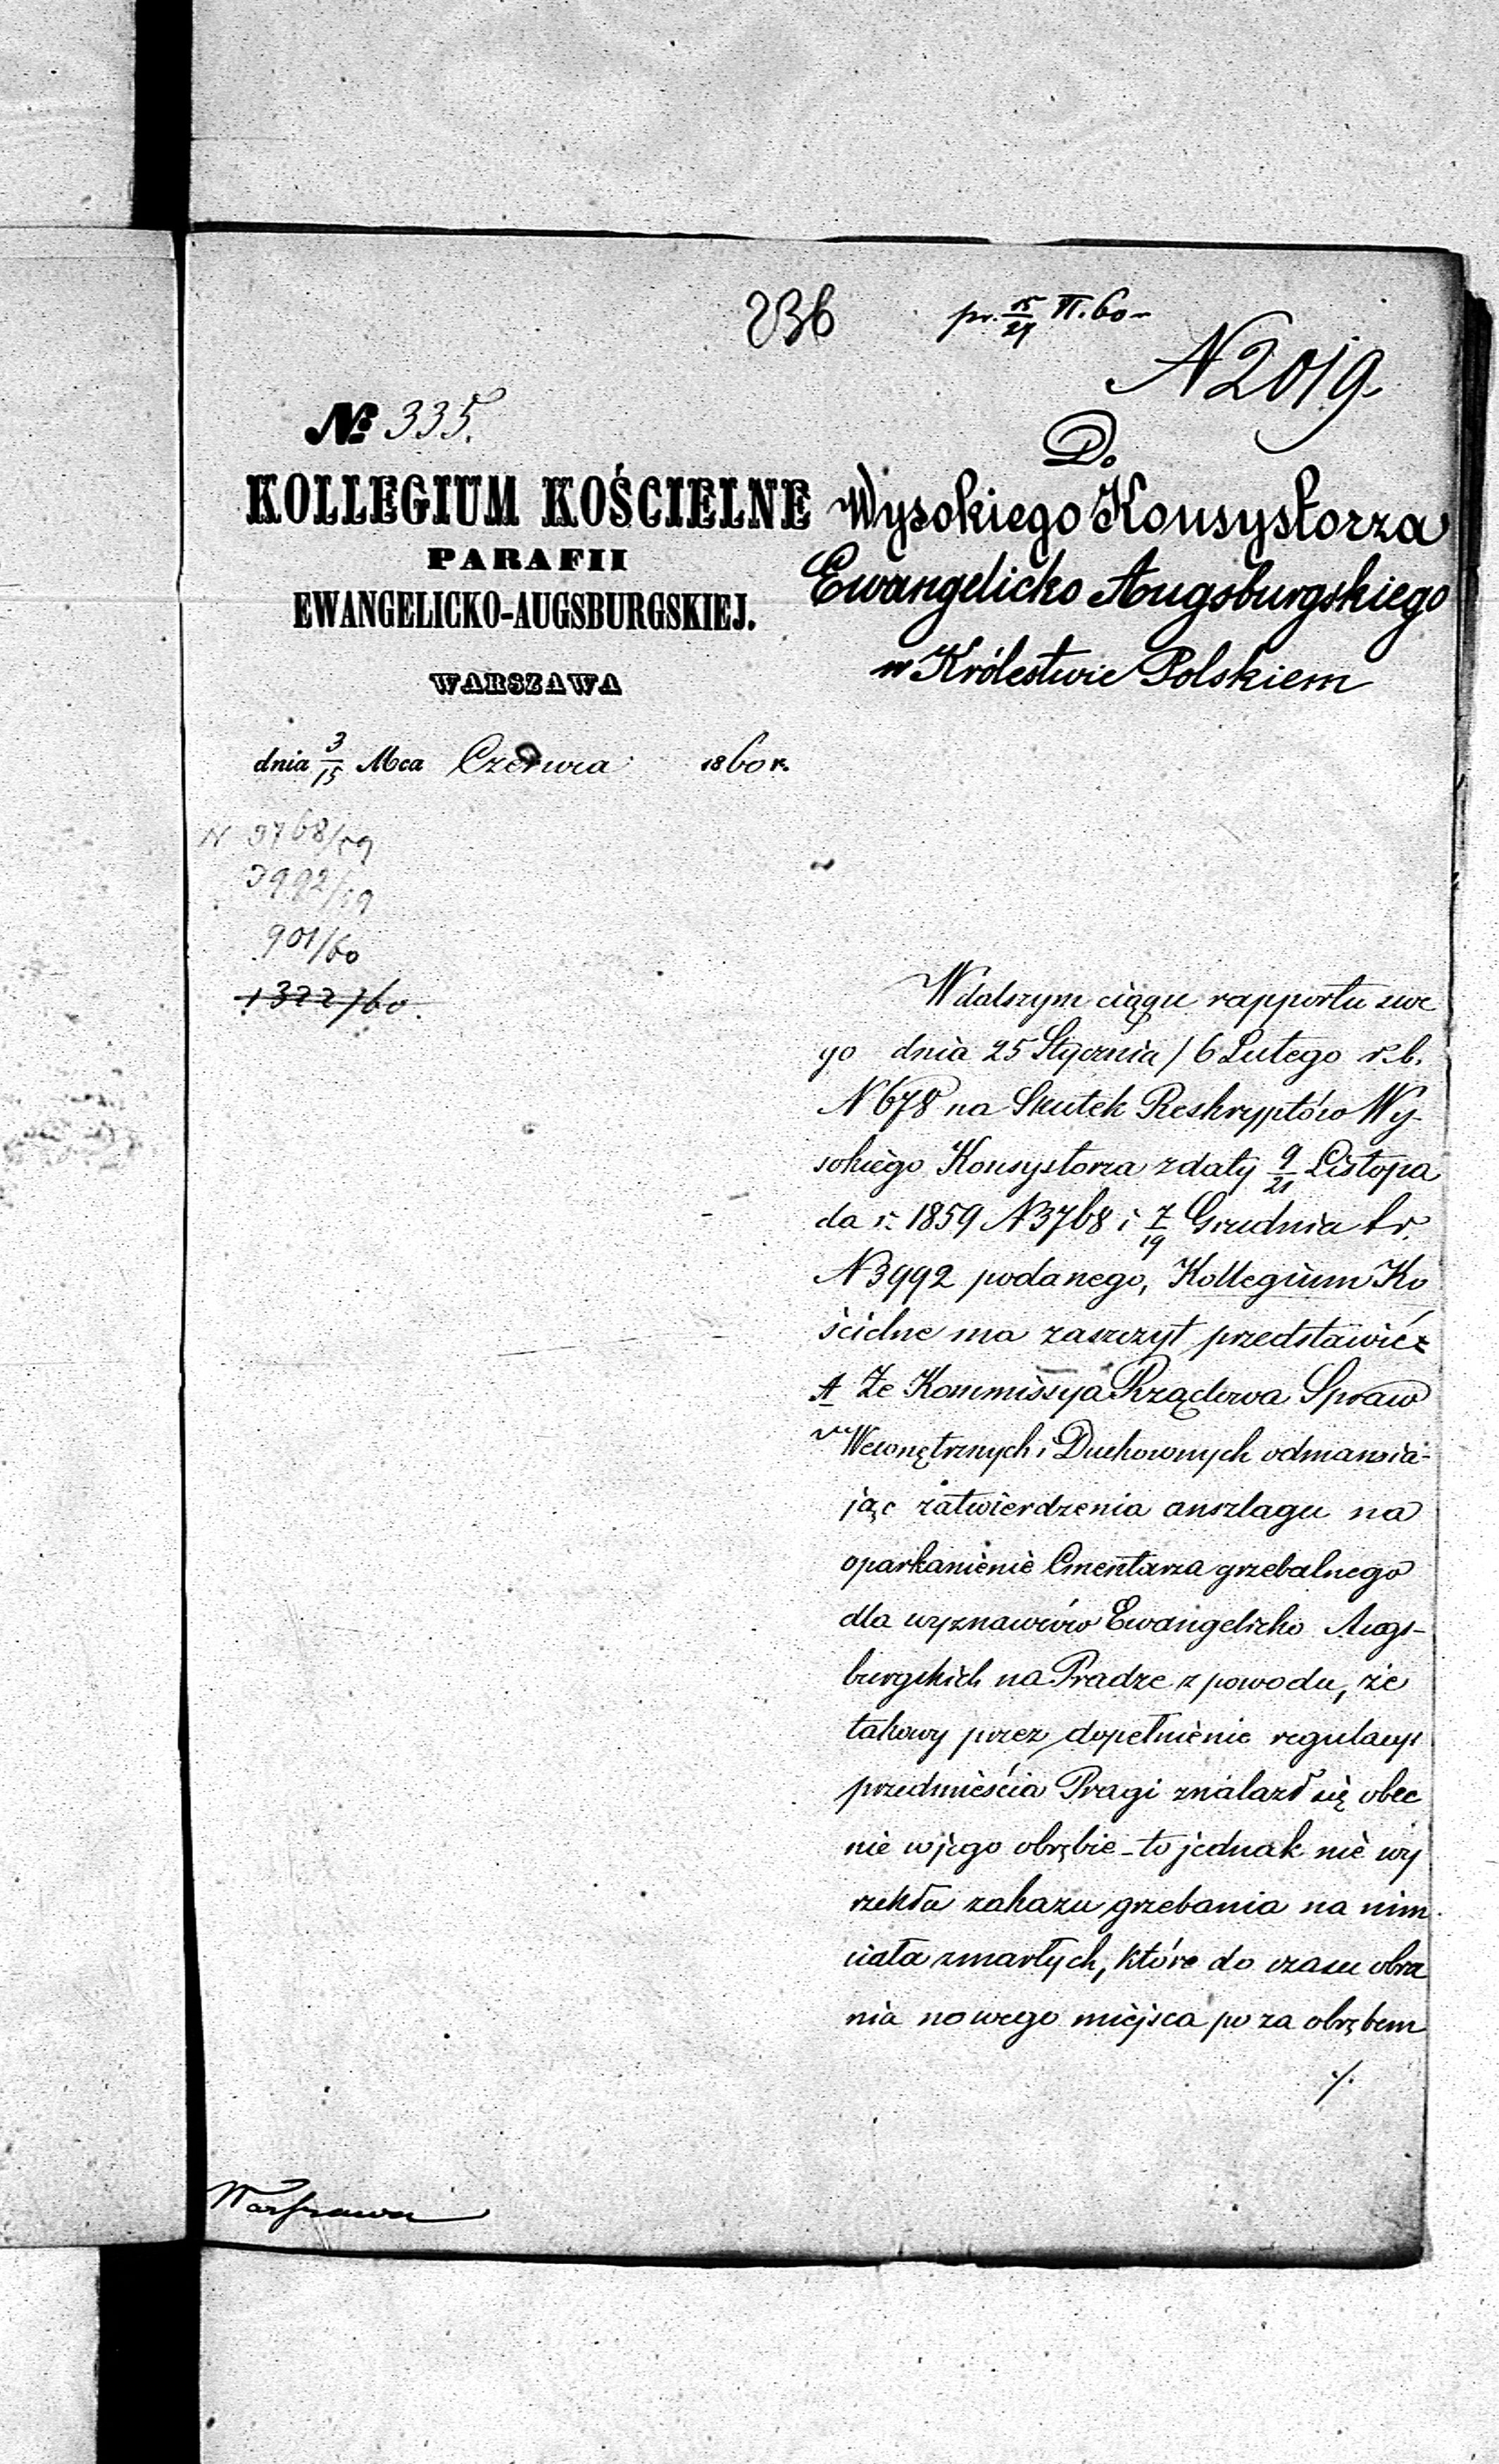 236
pr. 15/27 VI. 60
N 2019
№ 335.
KOLLEGIUM KOŚCIELNE
PARAFII
EWANGELICKO-AUGSBURGSKIEJ.
WARSZAWA
dnia 3/15 Mca Czerwca 1860 r.
N 3768/59
3992/59
901/60
1322/60.
Do
Wysokiego Konsystorza
Ewangelicko Augsburgskiego
w Królestwie Polskiem
W dalszym ciągu rapportu swe
go dnia 25 Stycznia / 6 Lutego r. b.
N 678 na skutek Reskryptów Wy-
sokiego Konsystorza z daty 9/21 Listopa
da r. 1859 N 3768 i 7/19 Grudnia t. r.
N 3992 podanego, Kollegium Ko
ścielne ma zaszczyt przedstawić:
A Że Kommissya Rządowa Spraw
Wewnętrznych i Duchownych odmawia-
jąc zatwierdzenia anszlagu na
oparkanienie Cmentarza grzebalnego
dla wyznawców Ewangelicko Augs-
burgskich na Pradze z powodu, że
takowy przez dopełnienie regulacyi
przedmieścia Pragi znalazł się obec
nie w jego obrębie - to jednak nie wy
rzekła zakazu grzebania na nim
ciała zmarłych, które do czasu obra
nia nowego miejsca po za obrębem
./.
Warszawa